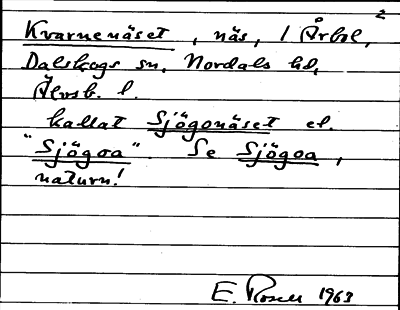 2
Kvarnenäset, näs, i Årbol,
Dalskogs sn, Nordals hd,
Älvsb. l.
kallat Sjögonäset el.
"Sjögoa". Se Sjögoa,
naturn!
E. Rosell 1963